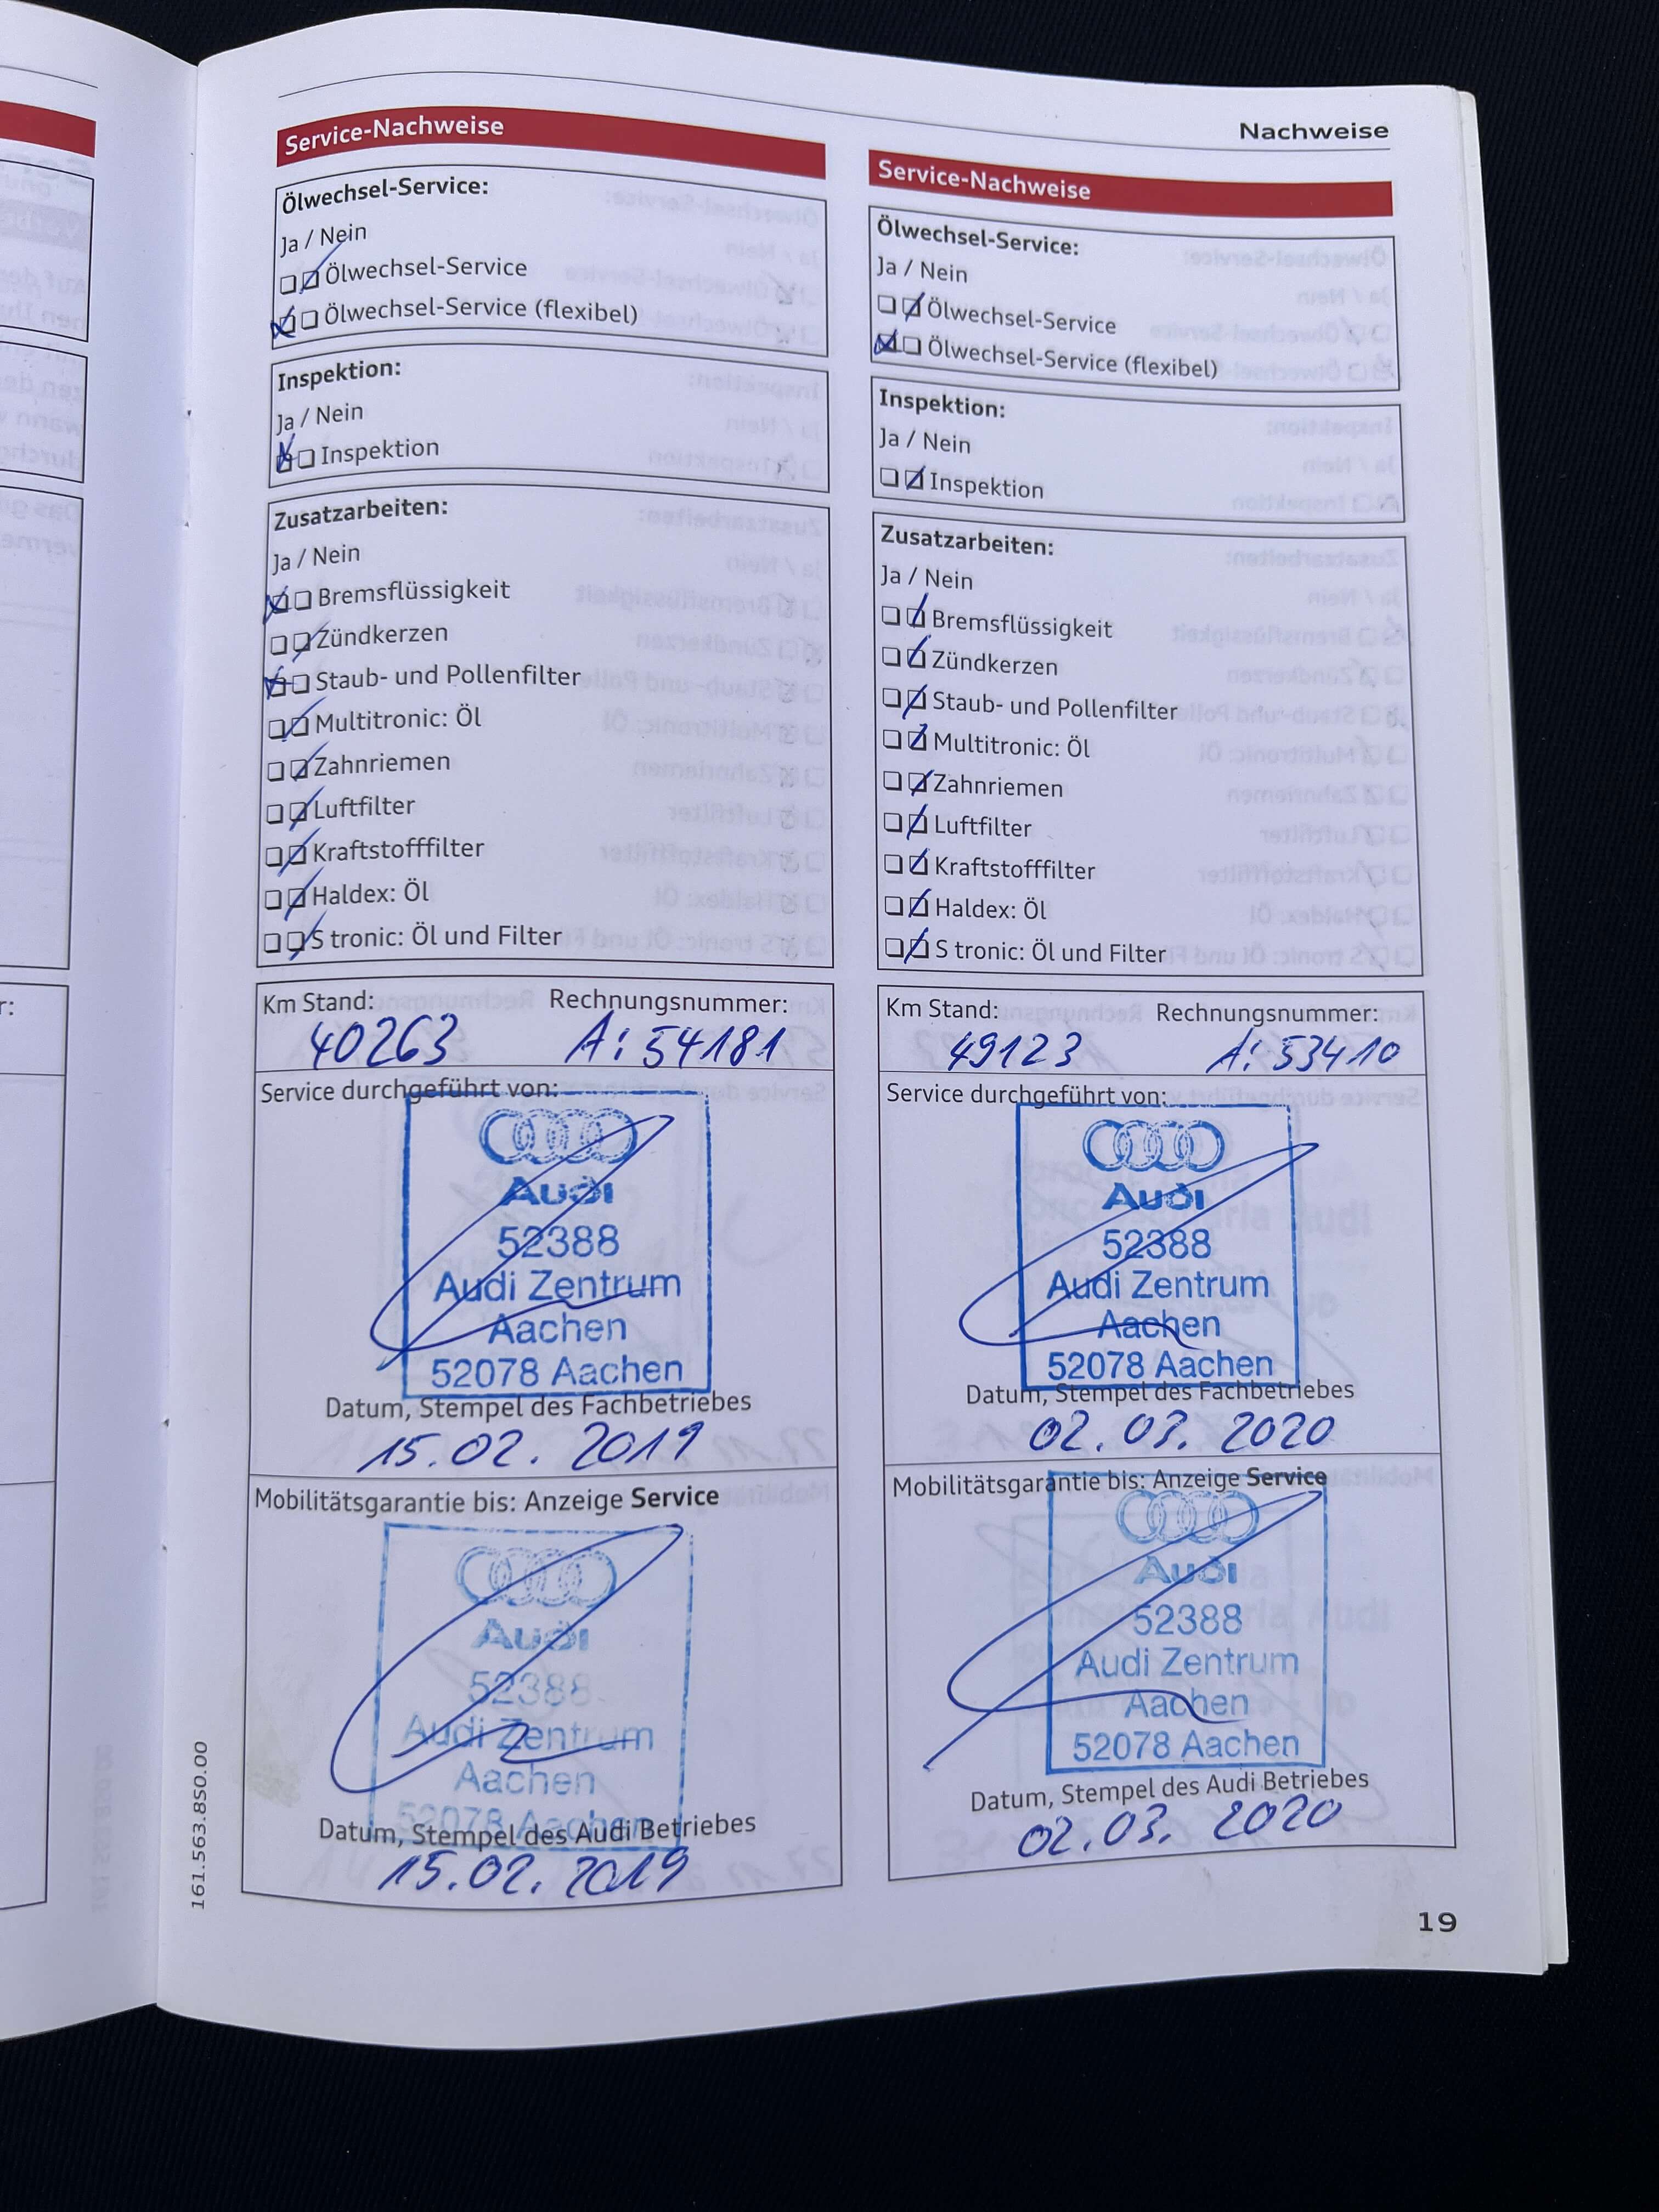 Nachweise
Service-Nachweise
Ölwechsel-Service:
Ja / Nein
Ölwechsel-Service
Ölwechsel-Service (flexibel)
Inspektion:
Ja / Nein
Inspektion
Zusatzarbeiten:
Ja / Nein
Bremsflüssigkeit
Zündkerzen
Staub- und Pollenfilter
Multitronic: Öl
Zahnriemen
Luftfilter
Kraftstofffilter
Haldex: Öl
S tronic: Öl und Filter
Km Stand: Rechnungsnummer:
40263 A: 54181
Service durchgeführt von:
Audi
52388
Audi Zentrum
Aachen
52078 Aachen
Datum, Stempel des Fachbetriebes
15.02.2019
Mobilitätsgarantie bis: Anzeige Service
Audi
52388
Audi Zentrum
Aachen
52078 Aachen
Datum, Stempel des Audi Betriebes
15.02.2019
161.563.850.00
Service-Nachweise
Ölwechsel-Service:
Ja / Nein
Ölwechsel-Service
Ölwechsel-Service (flexibel)
Inspektion:
Ja / Nein
Inspektion
Zusatzarbeiten:
Ja / Nein
Bremsflüssigkeit
Zündkerzen
Staub- und Pollenfilter
Multitronic: Öl
Zahnriemen
Luftfilter
Kraftstofffilter
Haldex: Öl
S tronic: Öl und Filter
Km Stand: Rechnungsnummer:
49123 A: 53410
Service durchgeführt von:
Audi
52388
Audi Zentrum
Aachen
52078 Aachen
Datum, Stempel des Fachbetriebes
02.03.2020
Mobilitätsgarantie bis: Anzeige Service
Audi
52388
Audi Zentrum
Aachen
52078 Aachen
Datum, Stempel des Audi Betriebes
02.03.2020
19